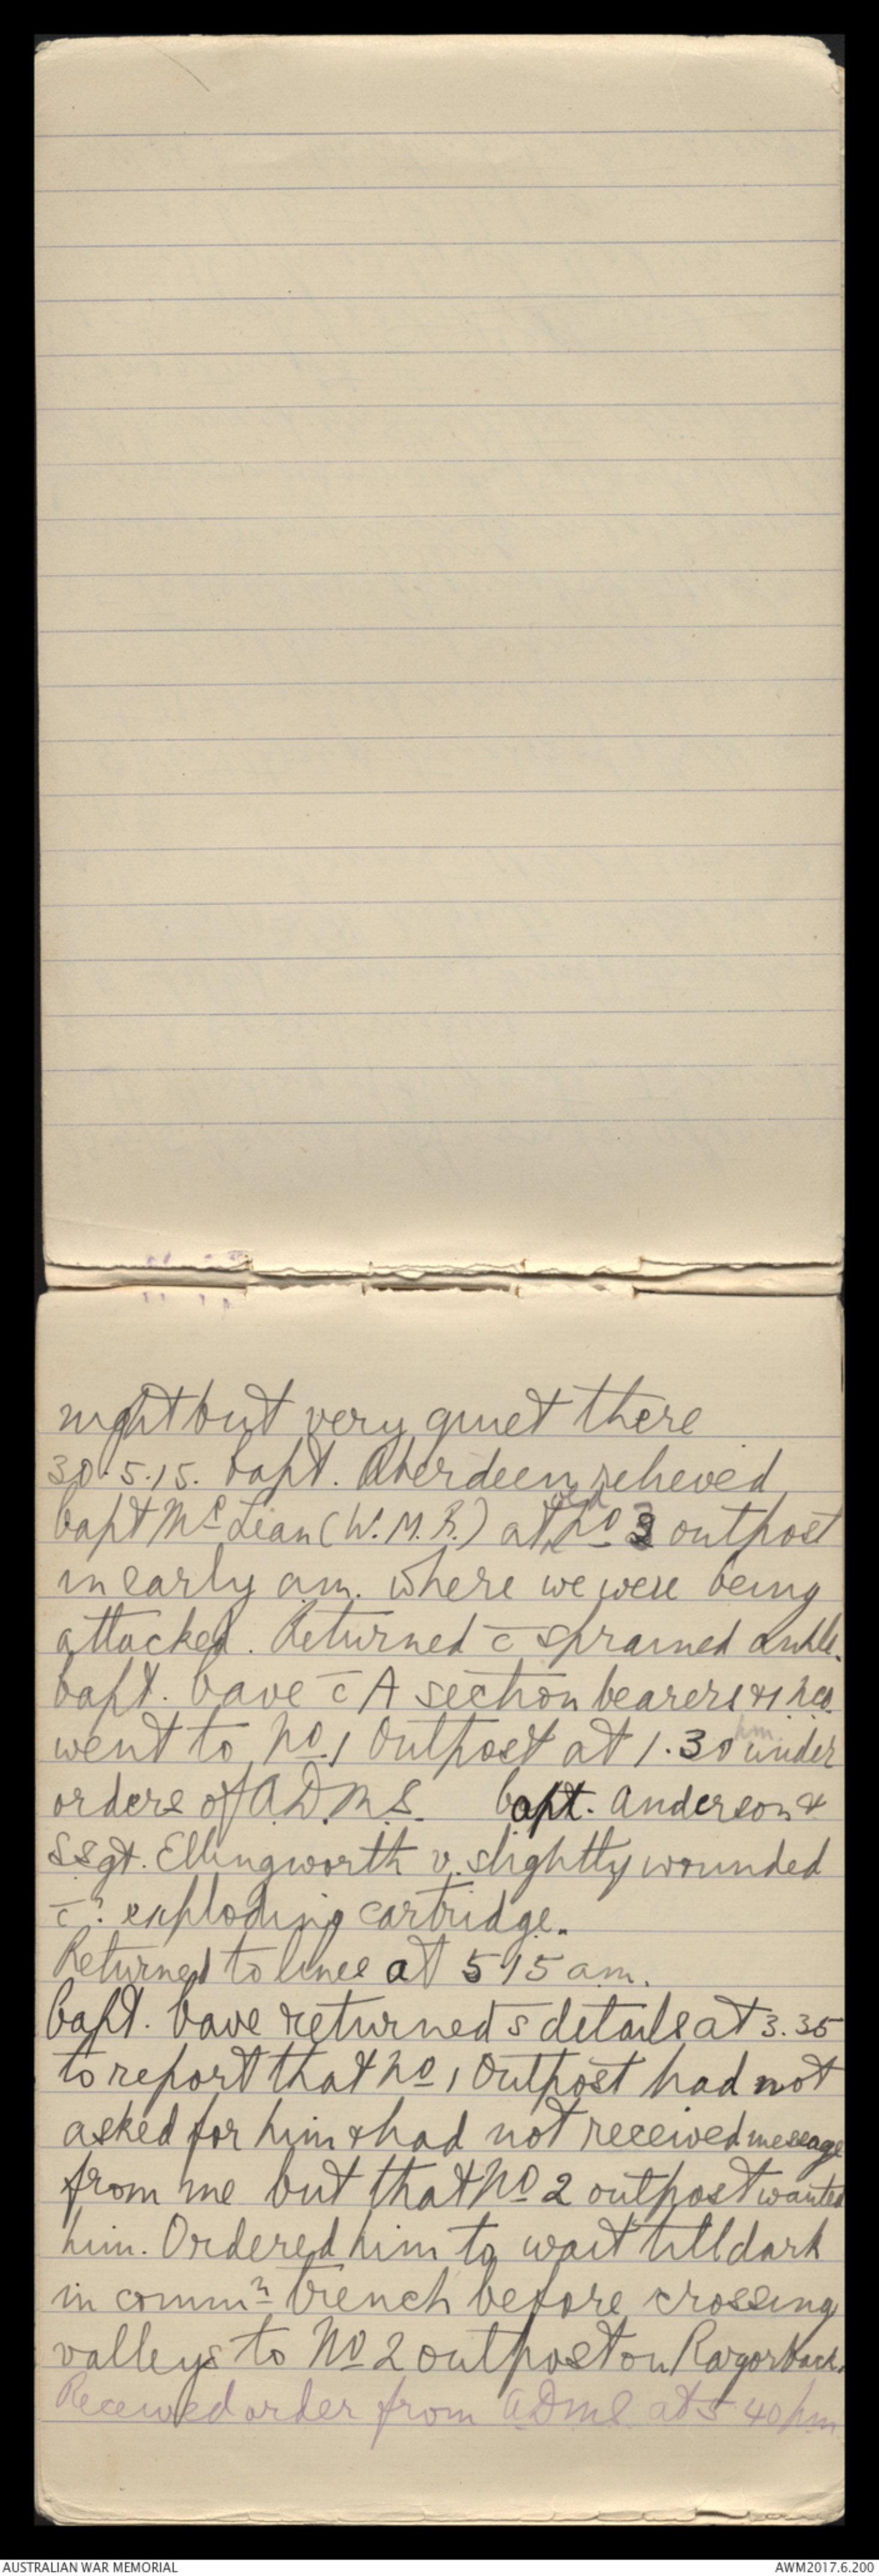 night but very quiet there
30.5.15. Capt. Aberdeen relieved
Capt McLean (W.M.R.) at No 3 outpost
in early am. where we were being
attacked. Returned c̄ sprained ankle.
Capt. Cave c̄ A section bearers & 1 nco.
went to No. 1 Outpost at 1.30 pm under
orders of A.D.M.S. Capt. Anderson &
S Sgt. Ellingworth v. slightly wounded
c̄ ? exploding cartridge.
Returned to lines at 5 15 am.
Capt. Cave returned s̄ details at 3.35
to report that No 1 Outpost had not
asked for him & had not received message
from me but that No 2 outpost wanted
him. Ordered him to wait till dark
in commn trench before crossing
valleys to No 2 outpost on Razorback.
Received order from ADMS at 5 40 pm
AUSTRALIAN WAR MEMORIAL
AWM2017.6.200